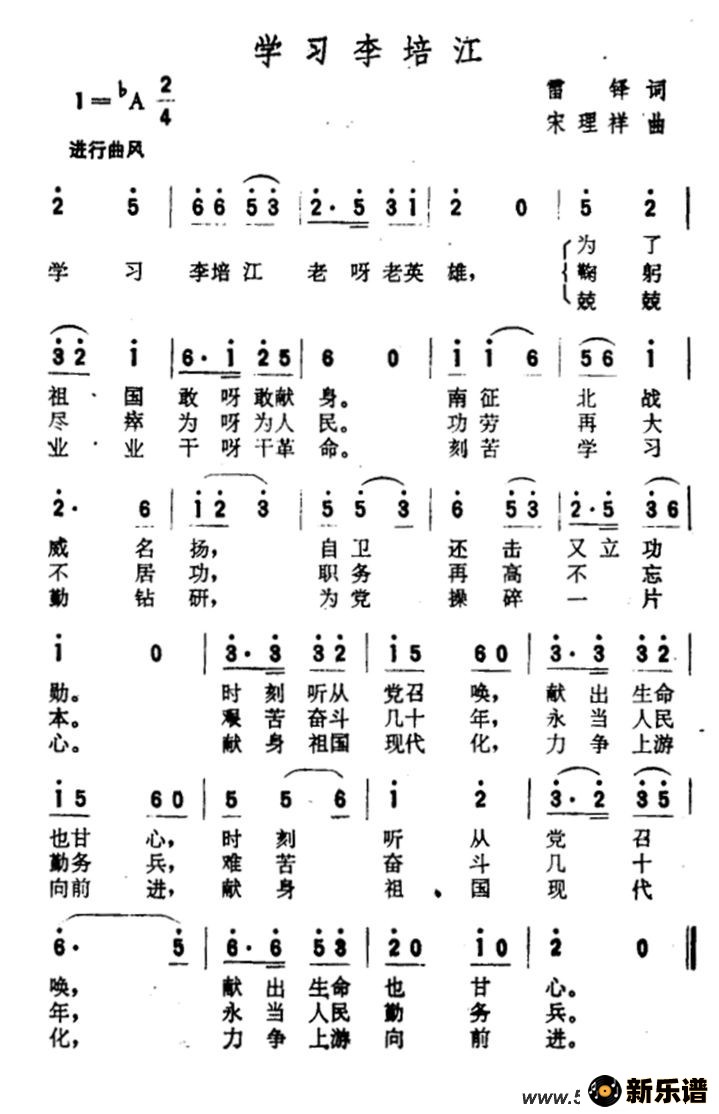 学习李培江
1=♭A 2/4
雷铎 词
宋理祥 曲
进行曲风
2 5 | 66 53 | 2·5 31 | 2 0 | 5 2 |
学习李培江老呀老英雄，为了
鞠躬
兢兢
32 1 | 6·1 25 | 6 0 | 1 1 6 | 56 1 |
祖国敢呀敢献身。南征北战
尽瘁为呀为人民。功劳再大
业业干呀干革命。刻苦学习
2· 6 | 12 3 | 5 5 3 | 6 53 | 2·5 36 |
威名扬，自卫还击又立功
不居功，职务再高不忘
勤钻研，为党操碎一片
1 0 | 3·3 32 | 15 60 | 3·3 32 |
勋。时刻听从党召唤，献出生命
本。艰苦奋斗几十年，永当人民
心。献身祖国现代化，力争上游
15 60 | 5 5 6 | 1 2 | 3·2 35 |
也甘心，时刻听从党召
勤务兵，难苦奋斗几十
向前进，献身祖国现代
6· 5 | 6·6 53 | 20 10 | 2 0 ‖
唤，献出生命也甘心。
年，永当人民勤务兵。
化，力争上游向前进。
www.5
新乐谱